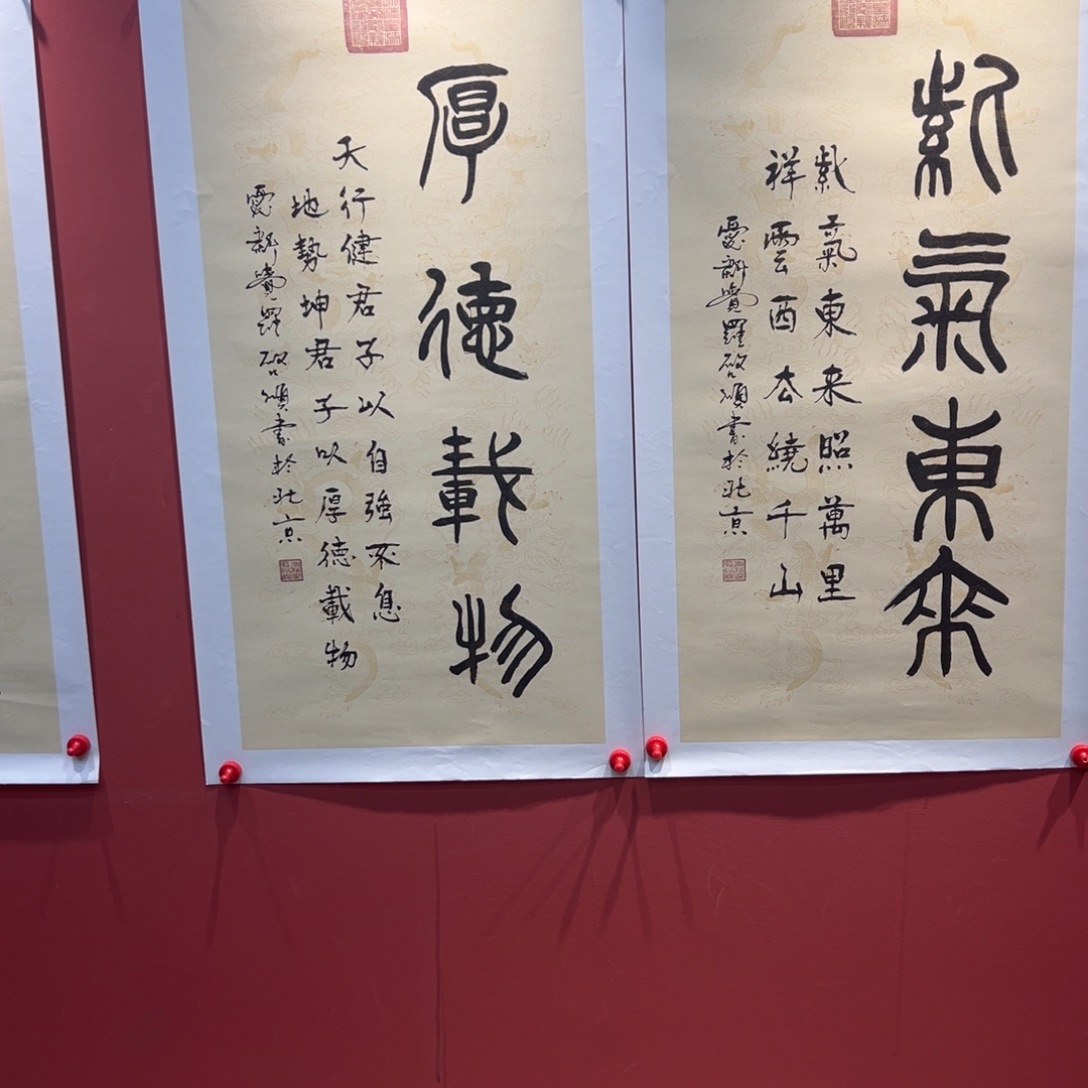 紫氣東來
紫氣東来照萬里
祥雲西去繞千山
愛新覺羅啓頌書於北京
厚德載物
天行健君子以自強不息
地勢坤君子以厚德載物
愛新覺羅啓頌書於北京